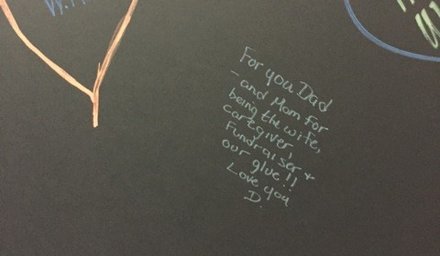 For you Dad
- and Mom for
being the wife,
caregiver,
fundraiser +
our glue!!
Love you
D.